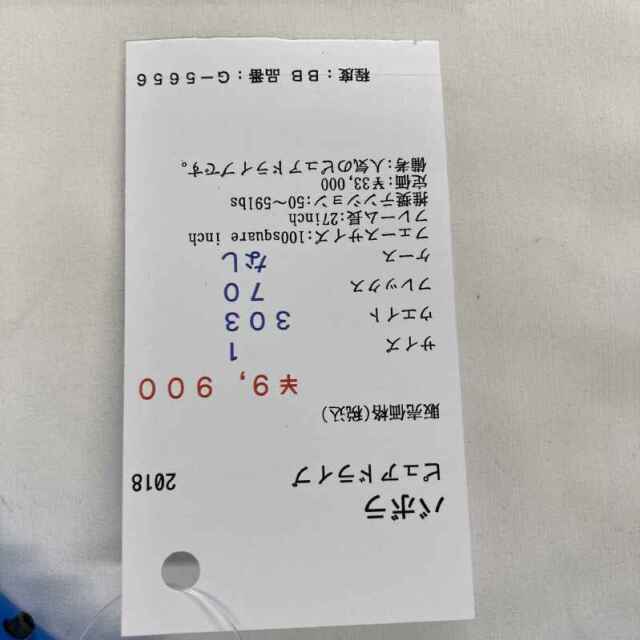 バボラ
ピュアドライブ 2018
販売価格(税込)
¥9,900
サイズ 1
ウエイト 303
フレックス 70
ケース なし
フェースサイズ:100square inch
フレーム長:27inch
推奨テンション:50~59lbs
定価:¥33,000
備考:人気のピュアドライブです。
程度:BB 品番:G-5656